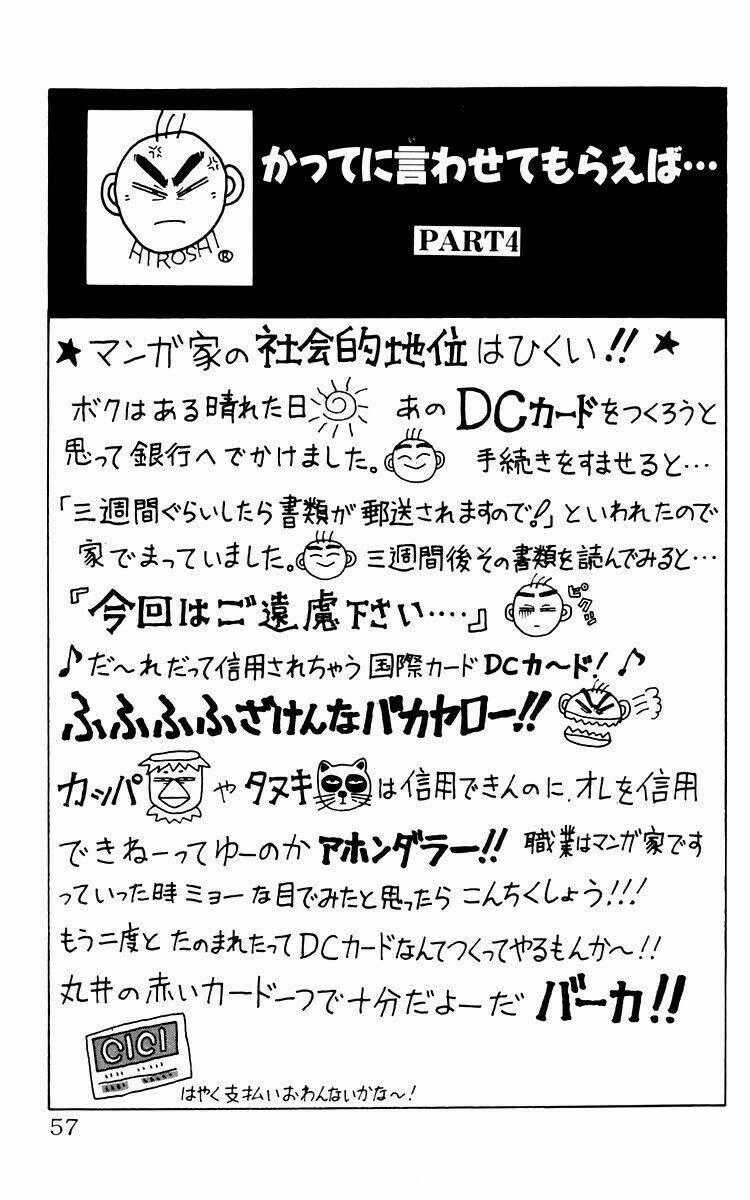 かってに言わせてもらえば…
PART4
HIROSHI ®
★マンガ家の社会的地位はひくい!!★
ボクはある晴れた日 あのDCカードをつくろうと
思って銀行へでかけました。 手続きをすませると…
「三週間ぐらいしたら書類が郵送されますので!」といわれたので
家でまっていました。 三週間後その書類を読んでみると…
『今回はご遠慮下さい‥‥』 ピクッ
♪だ〜れだって信用されちゃう国際カードDCカ〜ド!♪
ふふふふざけんなバカヤロー!!
カッパやタヌキは信用できんのに、オレを信用
できねーってゆーのかアホンダラー!! 職業はマンガ家です
っていった時ミョーな目でみたと思ったらこんちくしょう!!!
もう二度とたのまれたってDCカードなんてつくってやるもんか〜!!
丸井の赤いカード一つで十分だよーだ バーカ!!
OIOI
はやく支払いおわんないかな〜!
57